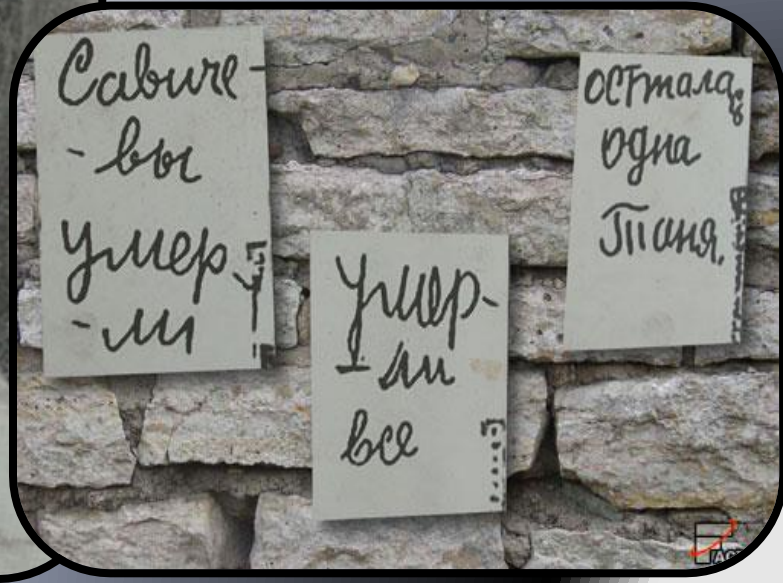 Савиче-
-вы
умер
-ли
умер-
-ли
все
осталась
одна
Таня.